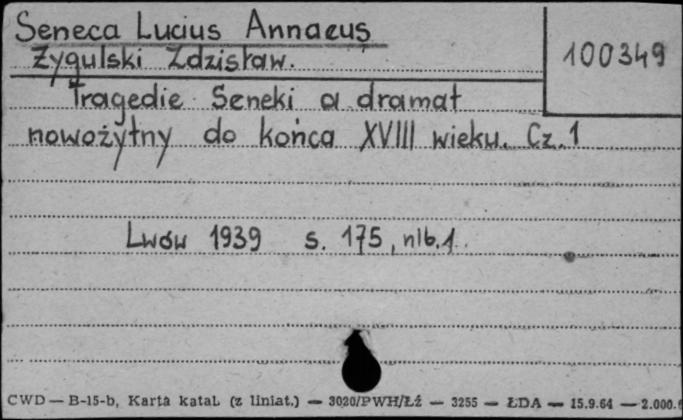 Seneca Lucius Annaeus
Żygulski Zdzisław.
100349
Tragedie Seneki a dramat
nowożytny do końca XVIII wieku. Cz.1
Lwów 1939 s. 175, nlb.1.
CWD — B-15-b, Karta katal. (z liniat.) — 3020/PWH/Łż — 3255 — ŁDA — 15.9.64 — 2.000.